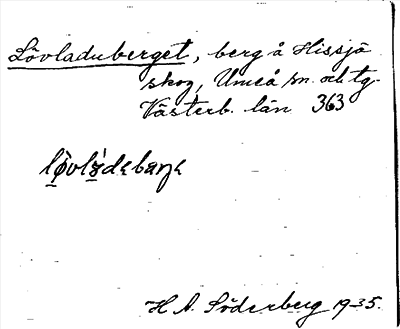 Lövladuberget, berg å Hissjö
skog, Umeå sn. och tg.
Västerb. län 363
H. A. Söderberg 1935.